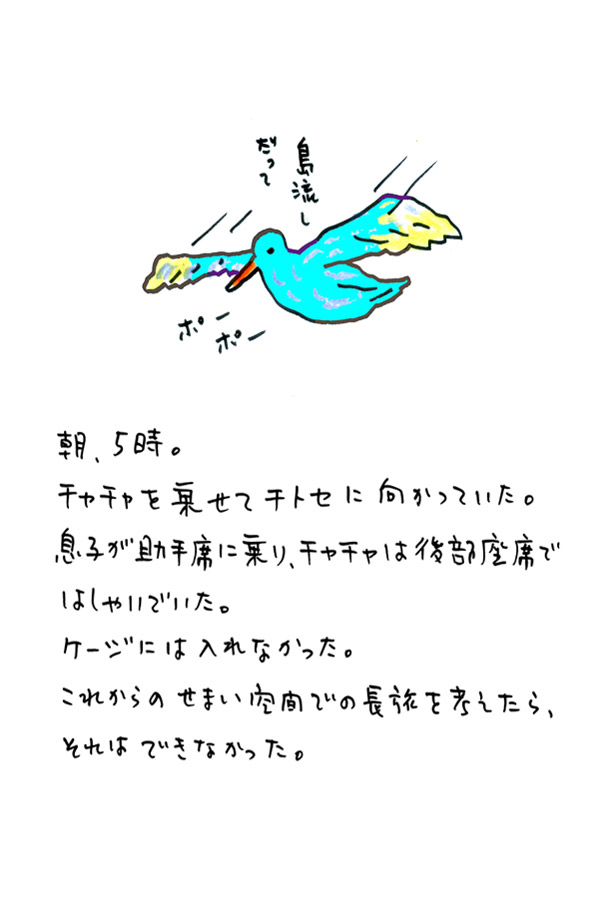 島流し
だって
ポー
ポー
朝、5時。
チャチャを乗せてチトセに向かっていた。
息子が助手席に乗り、チャチャは後部座席で
はしゃいでいた。
ケージには入れなかった。
これからのせまい空間での長旅を考えたら、
それはできなかった。